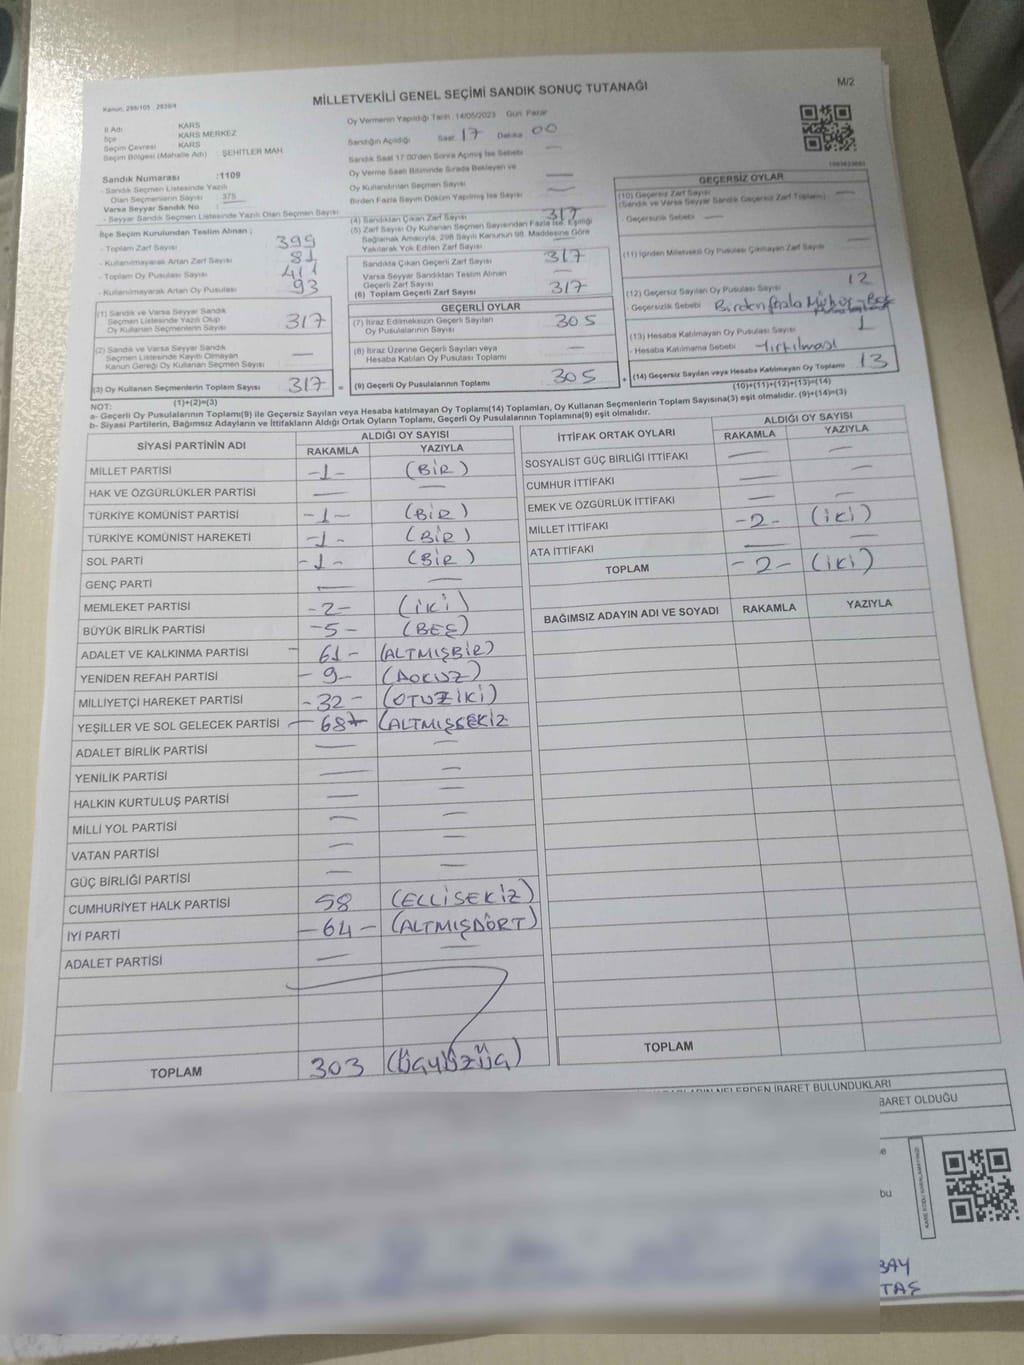 Kanun, 298/105 : 2839/4
MİLLETVEKİLİ GENEL SEÇİMİ SANDIK SONUÇ TUTANAĞI
M/2
İl Adı : KARS
İlçe : KARS MERKEZ
Seçim Çevresi : KARS
Seçim Bölgesi (Mahalle Adı) : ŞEHİTLER MAH.
Sandık Numarası :1109
- Sandık Seçmen Listesinde Yazılı
Olan Seçmenlerin Sayısı : 375
Varsa Seyyar Sandık No :
- Seyyar Sandık Seçmen Listesinde Yazılı Olan Seçmen Sayısı :
İlçe Seçim Kurulundan Teslim Alınan ;
- Toplam Zarf Sayısı 399
- Kullanılmayarak Artan Zarf Sayısı 81
- Toplam Oy Pusulası Sayısı 411
- Kullanılmayarak Artan Oy Pusulası 93
(1) Sandık ve Varsa Seyyar Sandık
Seçmen Listesinde Yazılı Olup
Oy Kullanan Seçmenlerin Sayısı 317
(2) Sandık ve Varsa Seyyar Sandık
Seçmen Listesinde Kayıtlı Olmayan
Kanun Gereği Oy Kullanan Seçmen Sayısı —
(3) Oy Kullanan Seçmenlerin Toplam Sayısı 317 =
(1)+(2)=(3)
Oy Vermenin Yapıldığı Tarih : 14/05/2023 Gün: Pazar
Sandığın Açıldığı Saat: 17 Dakika 00
Sandık Saat 17:00'den Sonra Açılmış İse Sebebi —
Oy Verme Saati Bitiminde Sırada Bekleyen ve
Oy Kullandırılan Seçmen Sayısı —
Birden Fazla Sayım Döküm Yapılmış İse Sayısı —
(4) Sandıktan Çıkan Zarf Sayısı 317
(5) Zarf Sayısı Oy Kullanan Seçmen Sayısından Fazla İse, Eşitliği
Sağlamak Amacıyla, 298 Sayılı Kanunun 98. Maddesine Göre
Yakılarak Yok Edilen Zarf Sayısı
Sandıkta Çıkan Geçerli Zarf Sayısı 317
Varsa Seyyar Sandıktan Teslim Alınan
Geçerli Zarf Sayısı —
(6) Toplam Geçerli Zarf Sayısı 317
GEÇERLİ OYLAR
(7) İtiraz Edilmeksizin Geçerli Sayılan
Oy Pusulalarının Sayısı 305
(8) İtiraz Üzerine Geçerli Sayılan veya
Hesaba Katılan Oy Pusulası Toplamı —
(9) Geçerli Oy Pusulalarının Toplamı 305 +
GEÇERSİZ OYLAR
(10) Geçersiz Zarf Sayısı
(Sandık ve Varsa Seyyar Sandık Geçersiz Zarf Toplamı) —
- Geçersizlik Sebebi : —
(11) İçinden Milletvekili Oy Pusulası Çıkmayan Zarf Sayısı —
(12) Geçersiz Sayılan Oy Pusulası Sayısı 12
- Geçersizlik Sebebi : Birden fazla Mühür-Boş
(13) Hesaba Katılmayan Oy Pusulası Sayısı 1
- Hesaba Katılmama Sebebi : Yırtılması
(14) Geçersiz Sayılan veya Hesaba Katılmayan Oy Toplamı 13
(10)+(11)+(12)+(13)=(14)
NOT:
a- Geçerli Oy Pusulalarının Toplamı(9) ile Geçersiz Sayılan veya Hesaba katılmayan Oy Toplamı(14) Toplamları, Oy Kullanan Seçmenlerin Toplam Sayısına(3) eşit olmalıdır. (9)+(14)=(3)
b- Siyasi Partilerin, Bağımsız Adayların ve İttifakların Aldığı Ortak Oyların Toplamı, Geçerli Oy Pusulalarının Toplamına(9) eşit olmalıdır.
SİYASİ PARTİNİN ADI
ALDIĞI OY SAYISI
RAKAMLA YAZIYLA
MİLLET PARTİSİ -1- (BİR)
HAK VE ÖZGÜRLÜKLER PARTİSİ — —
TÜRKİYE KOMÜNİST PARTİSİ -1- (BİR)
TÜRKİYE KOMÜNİST HAREKETİ -1- (BİR)
SOL PARTİ -1- (BİR)
GENÇ PARTİ — —
MEMLEKET PARTİSİ -2- (İKİ)
BÜYÜK BİRLİK PARTİSİ -5- (BEŞ)
ADALET VE KALKINMA PARTİSİ - 61 - (ALTMIŞBİR)
YENİDEN REFAH PARTİSİ - 9- (DOKUZ)
MİLLİYETÇİ HAREKET PARTİSİ -32- (OTUZİKİ)
YEŞİLLER VE SOL GELECEK PARTİSİ - 68 - (ALTMIŞSEKİZ
ADALET BİRLİK PARTİSİ — —
YENİLİK PARTİSİ — —
HALKIN KURTULUŞ PARTİSİ — —
MİLLİ YOL PARTİSİ — —
VATAN PARTİSİ — —
GÜÇ BİRLİĞİ PARTİSİ — —
CUMHURİYET HALK PARTİSİ 58 (ELLİSEKİZ)
İYİ PARTİ -64- (ALTMIŞDÖRT)
ADALET PARTİSİ — —
TOPLAM 303 (ÜçyÜzüç)
İTTİFAK ORTAK OYLARI
ALDIĞI OY SAYISI
RAKAMLA YAZIYLA
SOSYALİST GÜÇ BİRLİĞİ İTTİFAKI — —
CUMHUR İTTİFAKI — —
EMEK VE ÖZGÜRLÜK İTTİFAKI — —
MİLLET İTTİFAKI -2- (İKİ)
ATA İTTİFAKI — —
TOPLAM -2- (İKİ)
BAĞIMSIZ ADAYIN ADI VE SOYADI RAKAMLA YAZIYLA
TOPLAM
NELERDEN İBARET BULUNDUKLARI
BARET OLDUĞU
bu
BAY
TAŞ